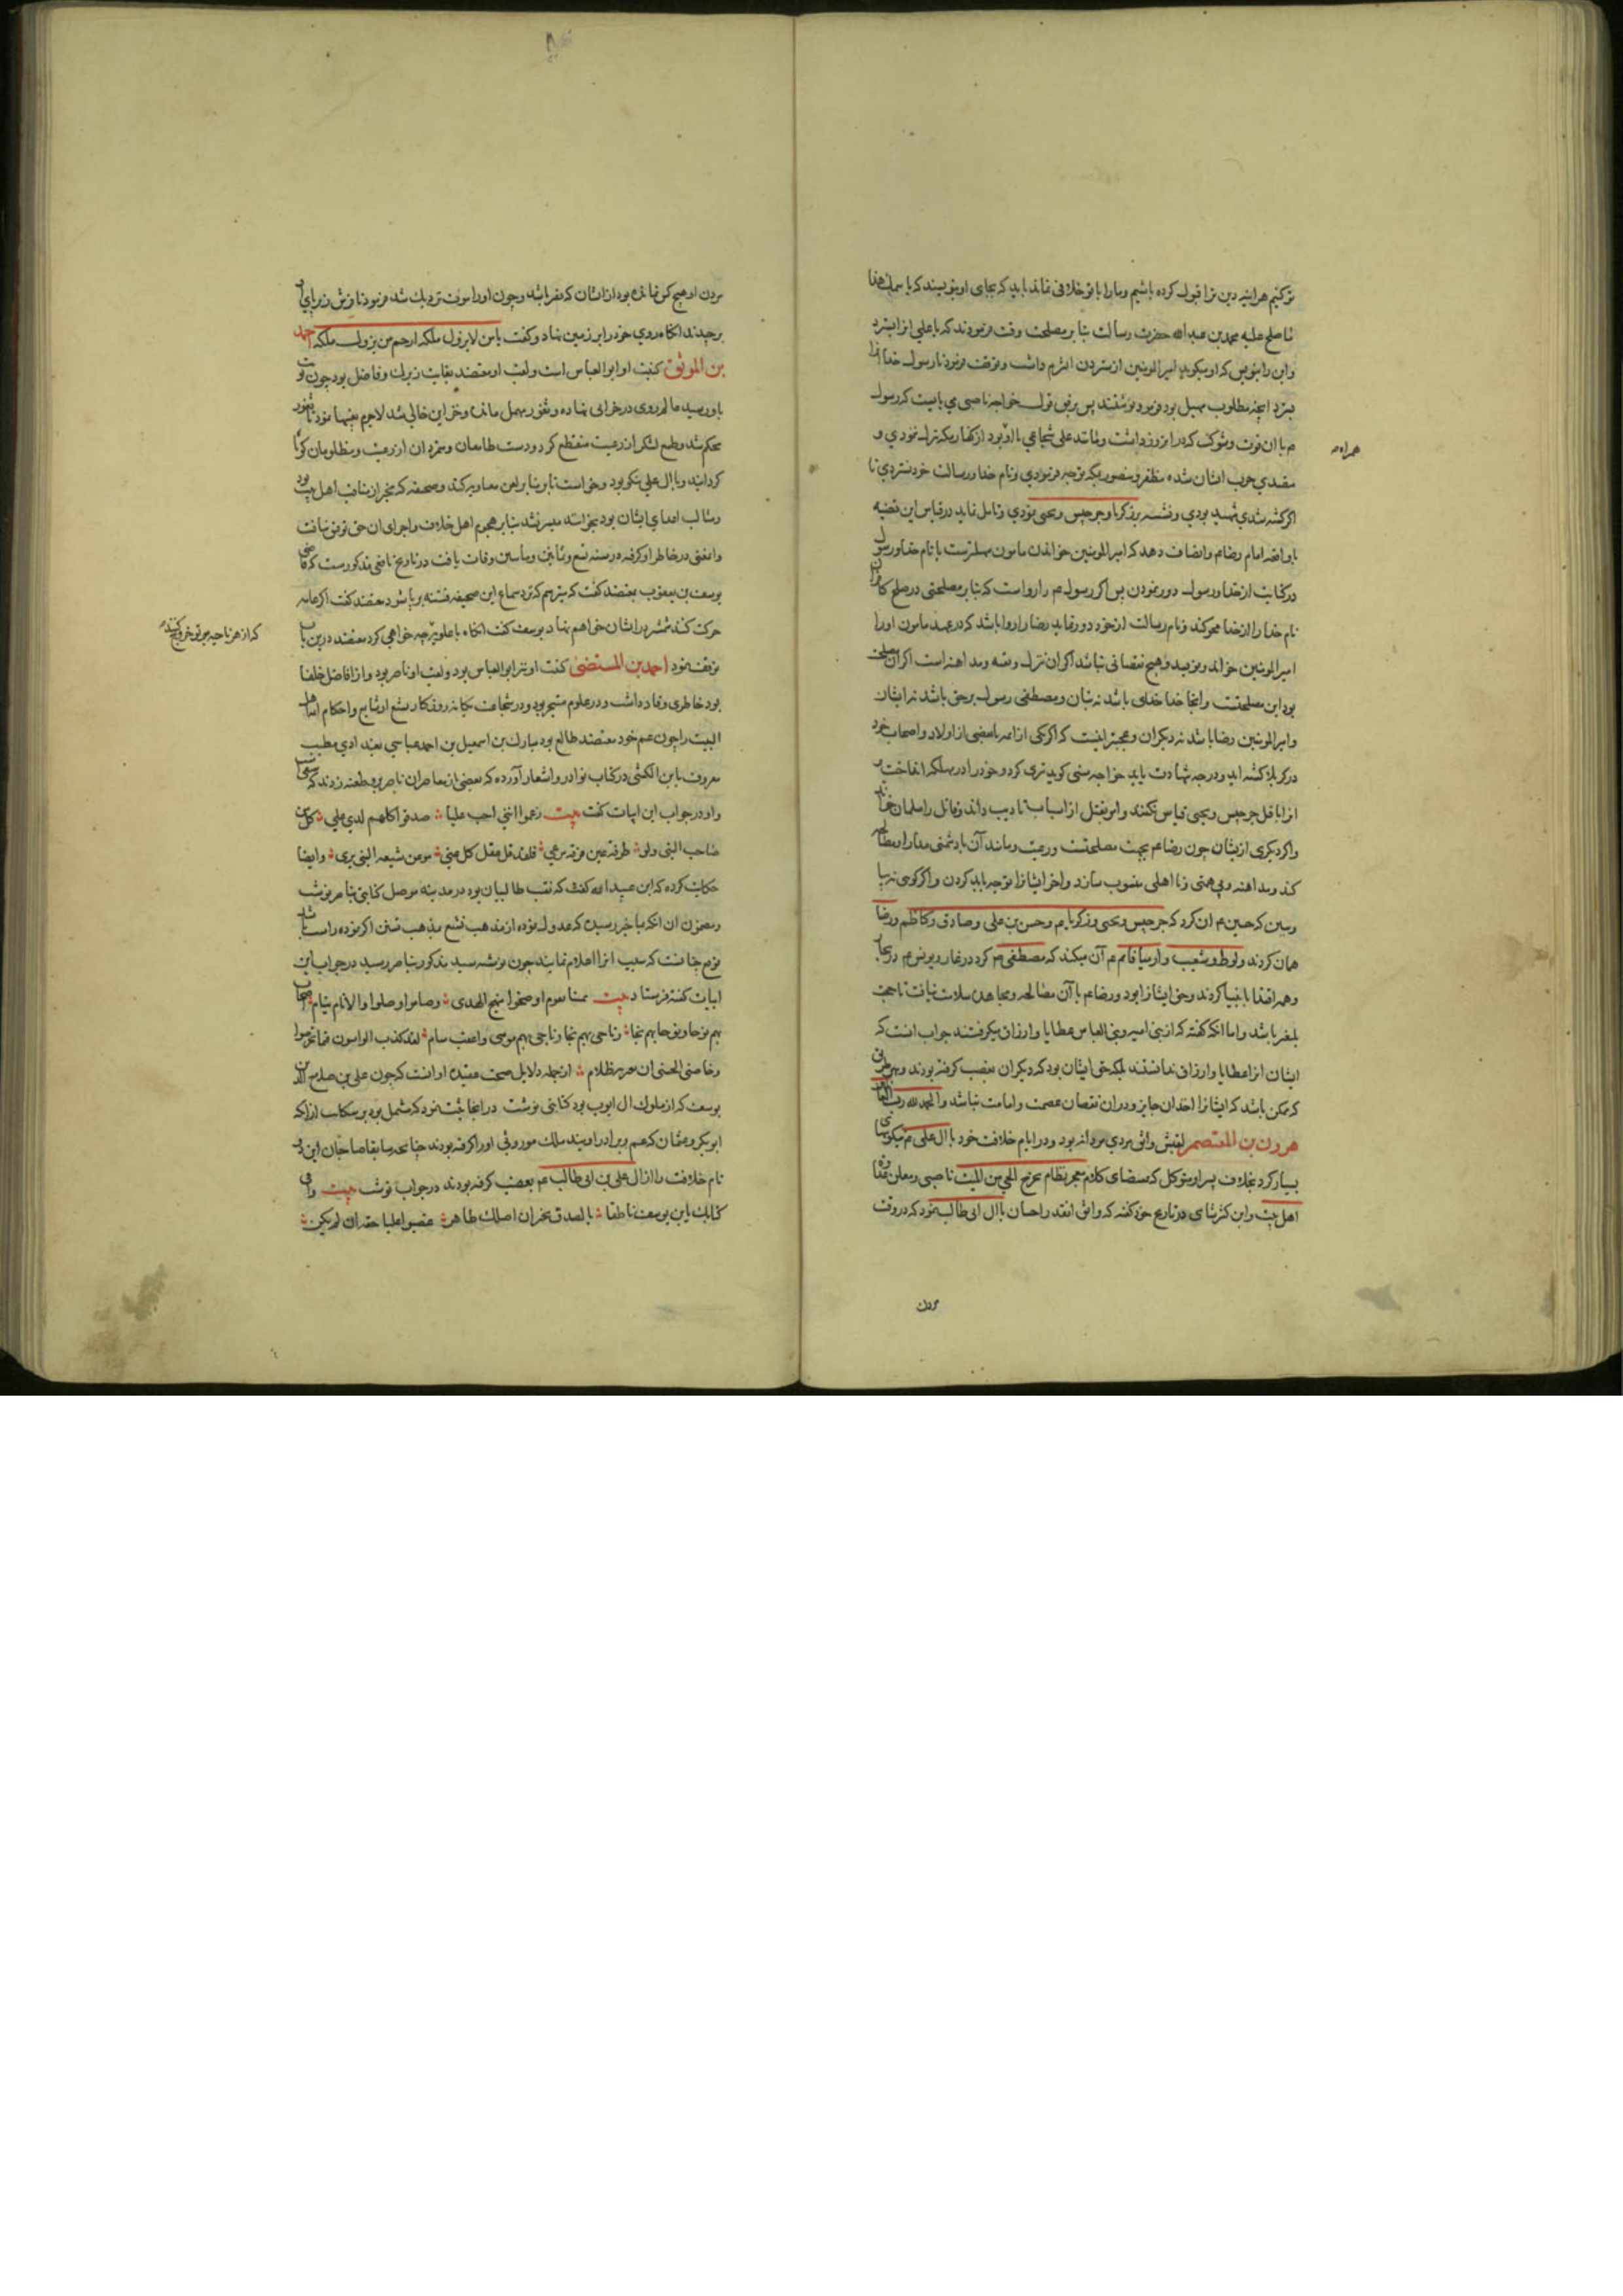 تو کنیم هر اینه دین ترا قبول کرده باشیم و ما را با تو خلافی نماند باید که بجای او بنویسند که باسمك هذا
ما صلح علیه محمد بن عبد الله حضرت رسالت بنا بر مصلحت وقت فرمودند که یا علی انرا بسترد
و این را بنویس که او میکوید امیر المومنین از ستردن اثرم داشت و توقف نمود تا رسول خدا انرا
بسترد انچه مطلوب سهیل بود فرمود نوشتند پس برفق قول خواجه ناصبی می بایست که رسول
م با ان قوت و شوکت که در انروز داشت و مانند علی شجاعی با او بود از کفار مکه ترك نمودی و
همراه
مقصدی حرب ایشان شده مظفر و منصور بمکه توجه فرمودی و نام خدا و رسالت خود نستردی تا
اکر کشته شدی شهید بودی و تشبه بزکریا و جرجیس و یحیی نمودی و تامل نماید در قیاس این قضیه
با واقعه امام رضا عم و انصاف دهد که امیر المومنین خواندن مامون سهلترست یا نام خدا و رسول
در کتابت از خدا و رسول دور نمودن پس اکر رسول م را رواست که بنا بر مصلحتی در صلح کافران
نام خدا را از خدا محو کند و نام رسالت از خود دور نماید رضا را روا باشد که در عهد مامون او را
امیر المومنین خواند و نویسد و هیچ نقصانی نباشد اکر ان ترك و تقیه و مداهنه است اکر ان مصلحت
بود این مصلحتست و انجا خدا خدای باشد نه بتان و مصطفی رسول بر حق باشد نه ایشان
و امیر المومنین رضا باشد نه دیکران و عجبتر اینست که اکر یکی از ائمه یا بعضی از اولاد و اصحاب خود
در کربلا کشته اید و درجه شهادت یابد خواجه سنی کوید نری کرد و خود را در مهلکه انداخت و
انرا با قتل جرجیس و یحیی قیاس نکنند و امر بقتل از اسباب تادیب داند و قاتل را مسلمان خواند
و اکر دیکری از ایشان چون رضا عم بجهت مصلحتست و رعیت و مانند آن با دشمنی مدارا و مصالحه
کند و مداهنه و بی همتی و نا اهلی منسوب سازد و اخر ایشانرا توجه باید کردن و اکر کوی نه بیا
و ببین که حسین عم ان کرد که جرجیس و یحیی و زکریا عم و حسن بن علی و صادق و کاظم و رضا
همان کردند و لوط و شعیب و ارمیا قائم عم آن میکند که مصطفی م کرد در غار و یونس عم در بحار
و همه اقتدا بانبیا کردند و حق ایشانرا بود و رضا عم با آن مصالحه و مجاهدت سلامت نیافت تا حجت
بلیغتر باشد و اما انکه کفته که از بنی امیه و بنی العباس عطایا و ارزاق میکرفتند جواب انست که
ایشان انرا عطایا و ارزاق ندانستند بلکه حق ایشان بود که دیکران بغصب کرفته بودند و بهر طریق
که ممکن باشد که ایشانرا اخذ ان جایز و در ان نقصان عصمت و امامت نباشد و الحمد لله رب العالمین
هرون بن المعتصم لقبش واثق مردی مردانه بود و در ایام خلافت خود با ال علی عم نیکویی
بسیار کرد بخلاف پسر او متوکل که بمقتضای کلام معجز نظام یخرج الحی من المیت ناصبی و معلن بعداوت
اهل بیت و ابن کثیر شامی در تاریخ خود کفته که واثق انقدر احسان با ال ابی طالب نمود که در وقت
مردن
مردن او هیچ کس نمانده بود از ایشان که فقیر باشد و چون او را موت نزدیك شد فرمود تا فرش زیر پای او
برچیدند انکاه روی خود را بر زمین نهاد و کفت یا من لا یزول ملکه ارحم من یزول ملکه احمد
بن الموثق کنیت او ابو العباس است و لقب او معتضد بغایت زیرك و فاضل بود چون نوبت
باو رسید عالم روی در خرابی نهاده و ثغور مهمل مانده و خزاین خالی شده لاجرم سعیها نمود تا ثغور
محکم شد و طمع لشکر از رعیت منقطع کرد و دست طامعان و متمردان از رعیت و مظلومان کوتاه
کردانید و با ال علی نیکو بود و خواست تا بر منابر لعن معاویه کند و صحیفه که مخبر از مناقب اهل بیت بود
و مثالب اعدای ایشان بود بخوانند میسر نشد بنا بر هجوم اهل خلاف و اجرای ان حق توفیق نیافت
یوسف بن یعقوب بمعتضد کفت که میترسم که نزد سماع این صحیفه فتنه بر پا شود معتضد کفت اکر عامه
حرکت کنند شمشیر در ایشان خواهم نهاد یوسف کفت انکاه با علویه چه خواهی کرد معتضد درین باب
که از هر ناحیه بر تو خروج کنند
توقف نمود احمد بن المستضئ کنیت او نیز ابو العباس بود و لقب او ناصر بود و از افاضل خلفا
بود خاطری وقاد داشت و در علوم متبحر بود و در شجاعت یکانه روزکار تشیع او شایع و احکام اهل
البیت را چون عم خود معتضد طالع بود مبارك بن اسمعیل بن احمد عباسی بغدادی خطیب
معروف بابن الکثی در کتاب نوادر و اشعار آورده که بعضی از معاصران ناصر برو طعنه زدند که شیعی است
و او در جواب این ابیات کفت بیت زعموا اننی احب علیا صدقوا کلهم لدی علی کل من
صاحب النبی ولو طرفة عین فرقه مرعی فلقد قل عقل کل غبی هو من شیعة النبی بری و ایضا
حکایت کرده که ابن عبید الله کفت که نقیب طالبیان بود در مدینه موصل کتابتی بناصر نوشت
و مضمون ان انکه بما خبر رسیده که عدول نموده از مذهب تشیع بمذهب تسنن اکر نموده راست باشد
ابیات کفته فرستاد بیت یمینا بقوم اوضحوا منهج الهدی وصاموا وصلوا والانام نیام اصاب
بهم نوحا ونوحا بهم نجا وناجی بهم موسی واعقب سام لقد کذب الواشون فیما تخرصوا
یوسف که از ملوك ال ایوب بود کتابتی نوشت در انجا ثبت نمود که مشتمل بود بر شکایت از انکه
ابو بکر و عثمان که عم و برادر اویند ملك موروثی او را کرفته بودند
نام خلافت را از ال علی بن ابی طالب عم بغصب کرفته بودند در جواب نوشت بیت وافی
کتابك یا ابن یوسف ناطقا بالصدق یخبر ان اصلك طاهر غصبوا علیا حقه ان لم یکن